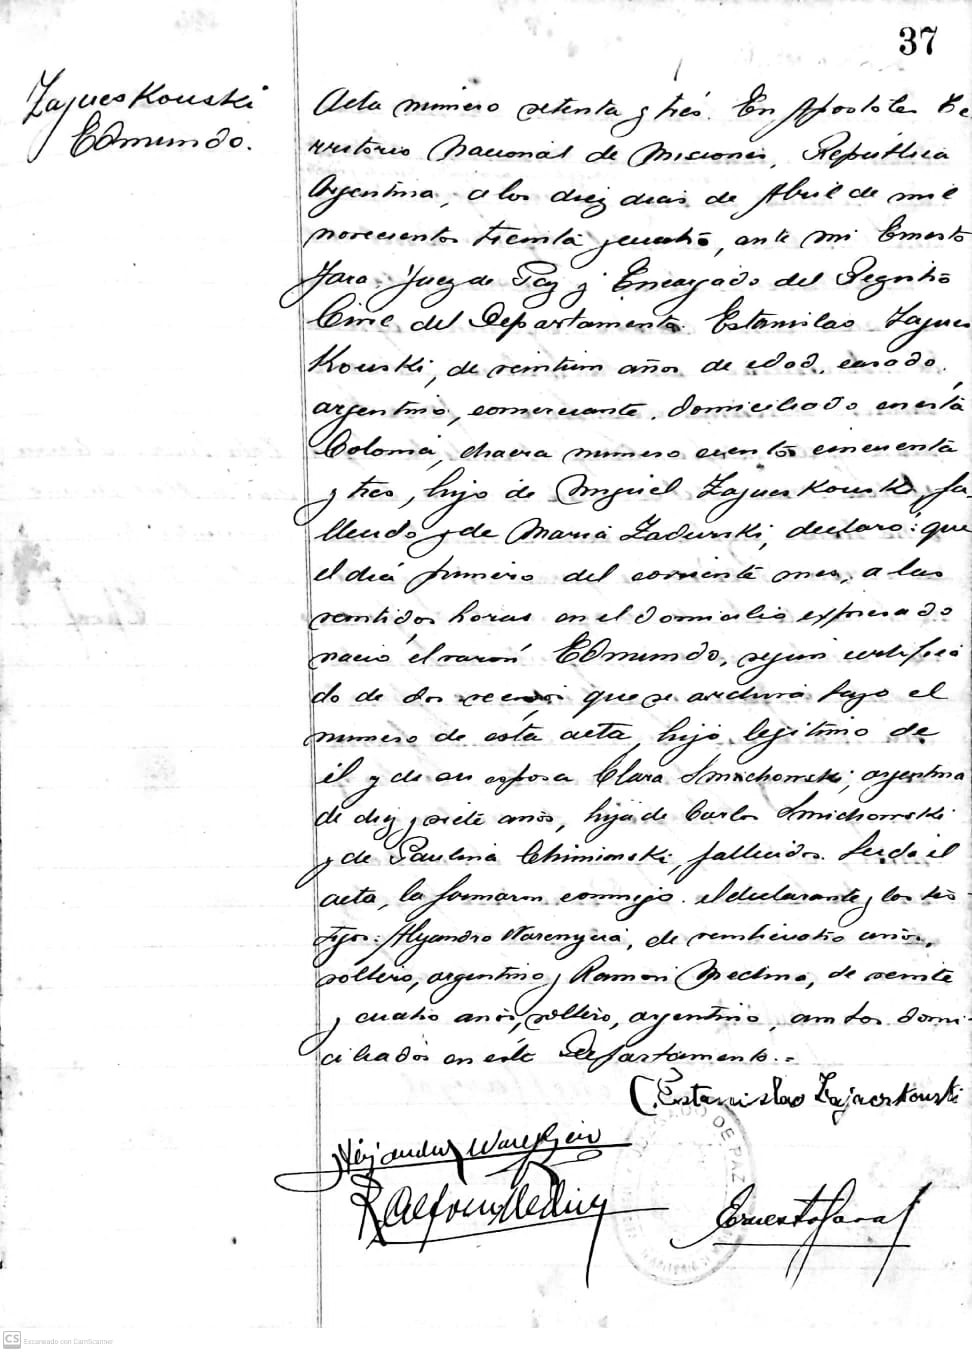 37
Zajues Kouski
Edmundo.
Acta número setenta y tres. En Apostoles Te-
rritorio Nacional de Misiones, República
Argentina, a los diez dias de Abril de mil
novecientos treinta y cuatro, ante mi Ernesto
Jara, Juez de Paz y Encargado del Registro
Civil del Departamento. Estanislao Zajues
Kouski, de veintiun años de edad, casado,
argentino, comerciante, domiciliado en esta
Colonia, chacra número ciento cincuenta
y tres, hijo de Miguel Zajues Kouski, fa-
llecido y de Maria Zadurski, declaró: que
el dia primero del corriente mes, a las
veintidos horas en el domicilio expresado
nació el varón Edmundo, segun certifica
do de dos vecinos que se archiva bajo el
número de esta acta, hijo legitimo de
él y de su esposa Clara Smichowski, argentina
de diez y siete años, hija de Carlos Smichowski
y de Paulina Chimionski, fallecidos. Leida el
acta, la firmaron conmigo el declarante y los tes-
tigos: Alejandro Warenycia, de veinticuatro años,
soltero, argentino y Ramon Medina, de veinte
y cuatro años, soltero, argentino, ambos domi-
ciliados en este Departamento.=
Estanislao Zajaeskouski
Alejandro
R Alfonso Medina
Ernesto Jara
JUZGADO DE PAZ
CS Escaneado con CamScanner